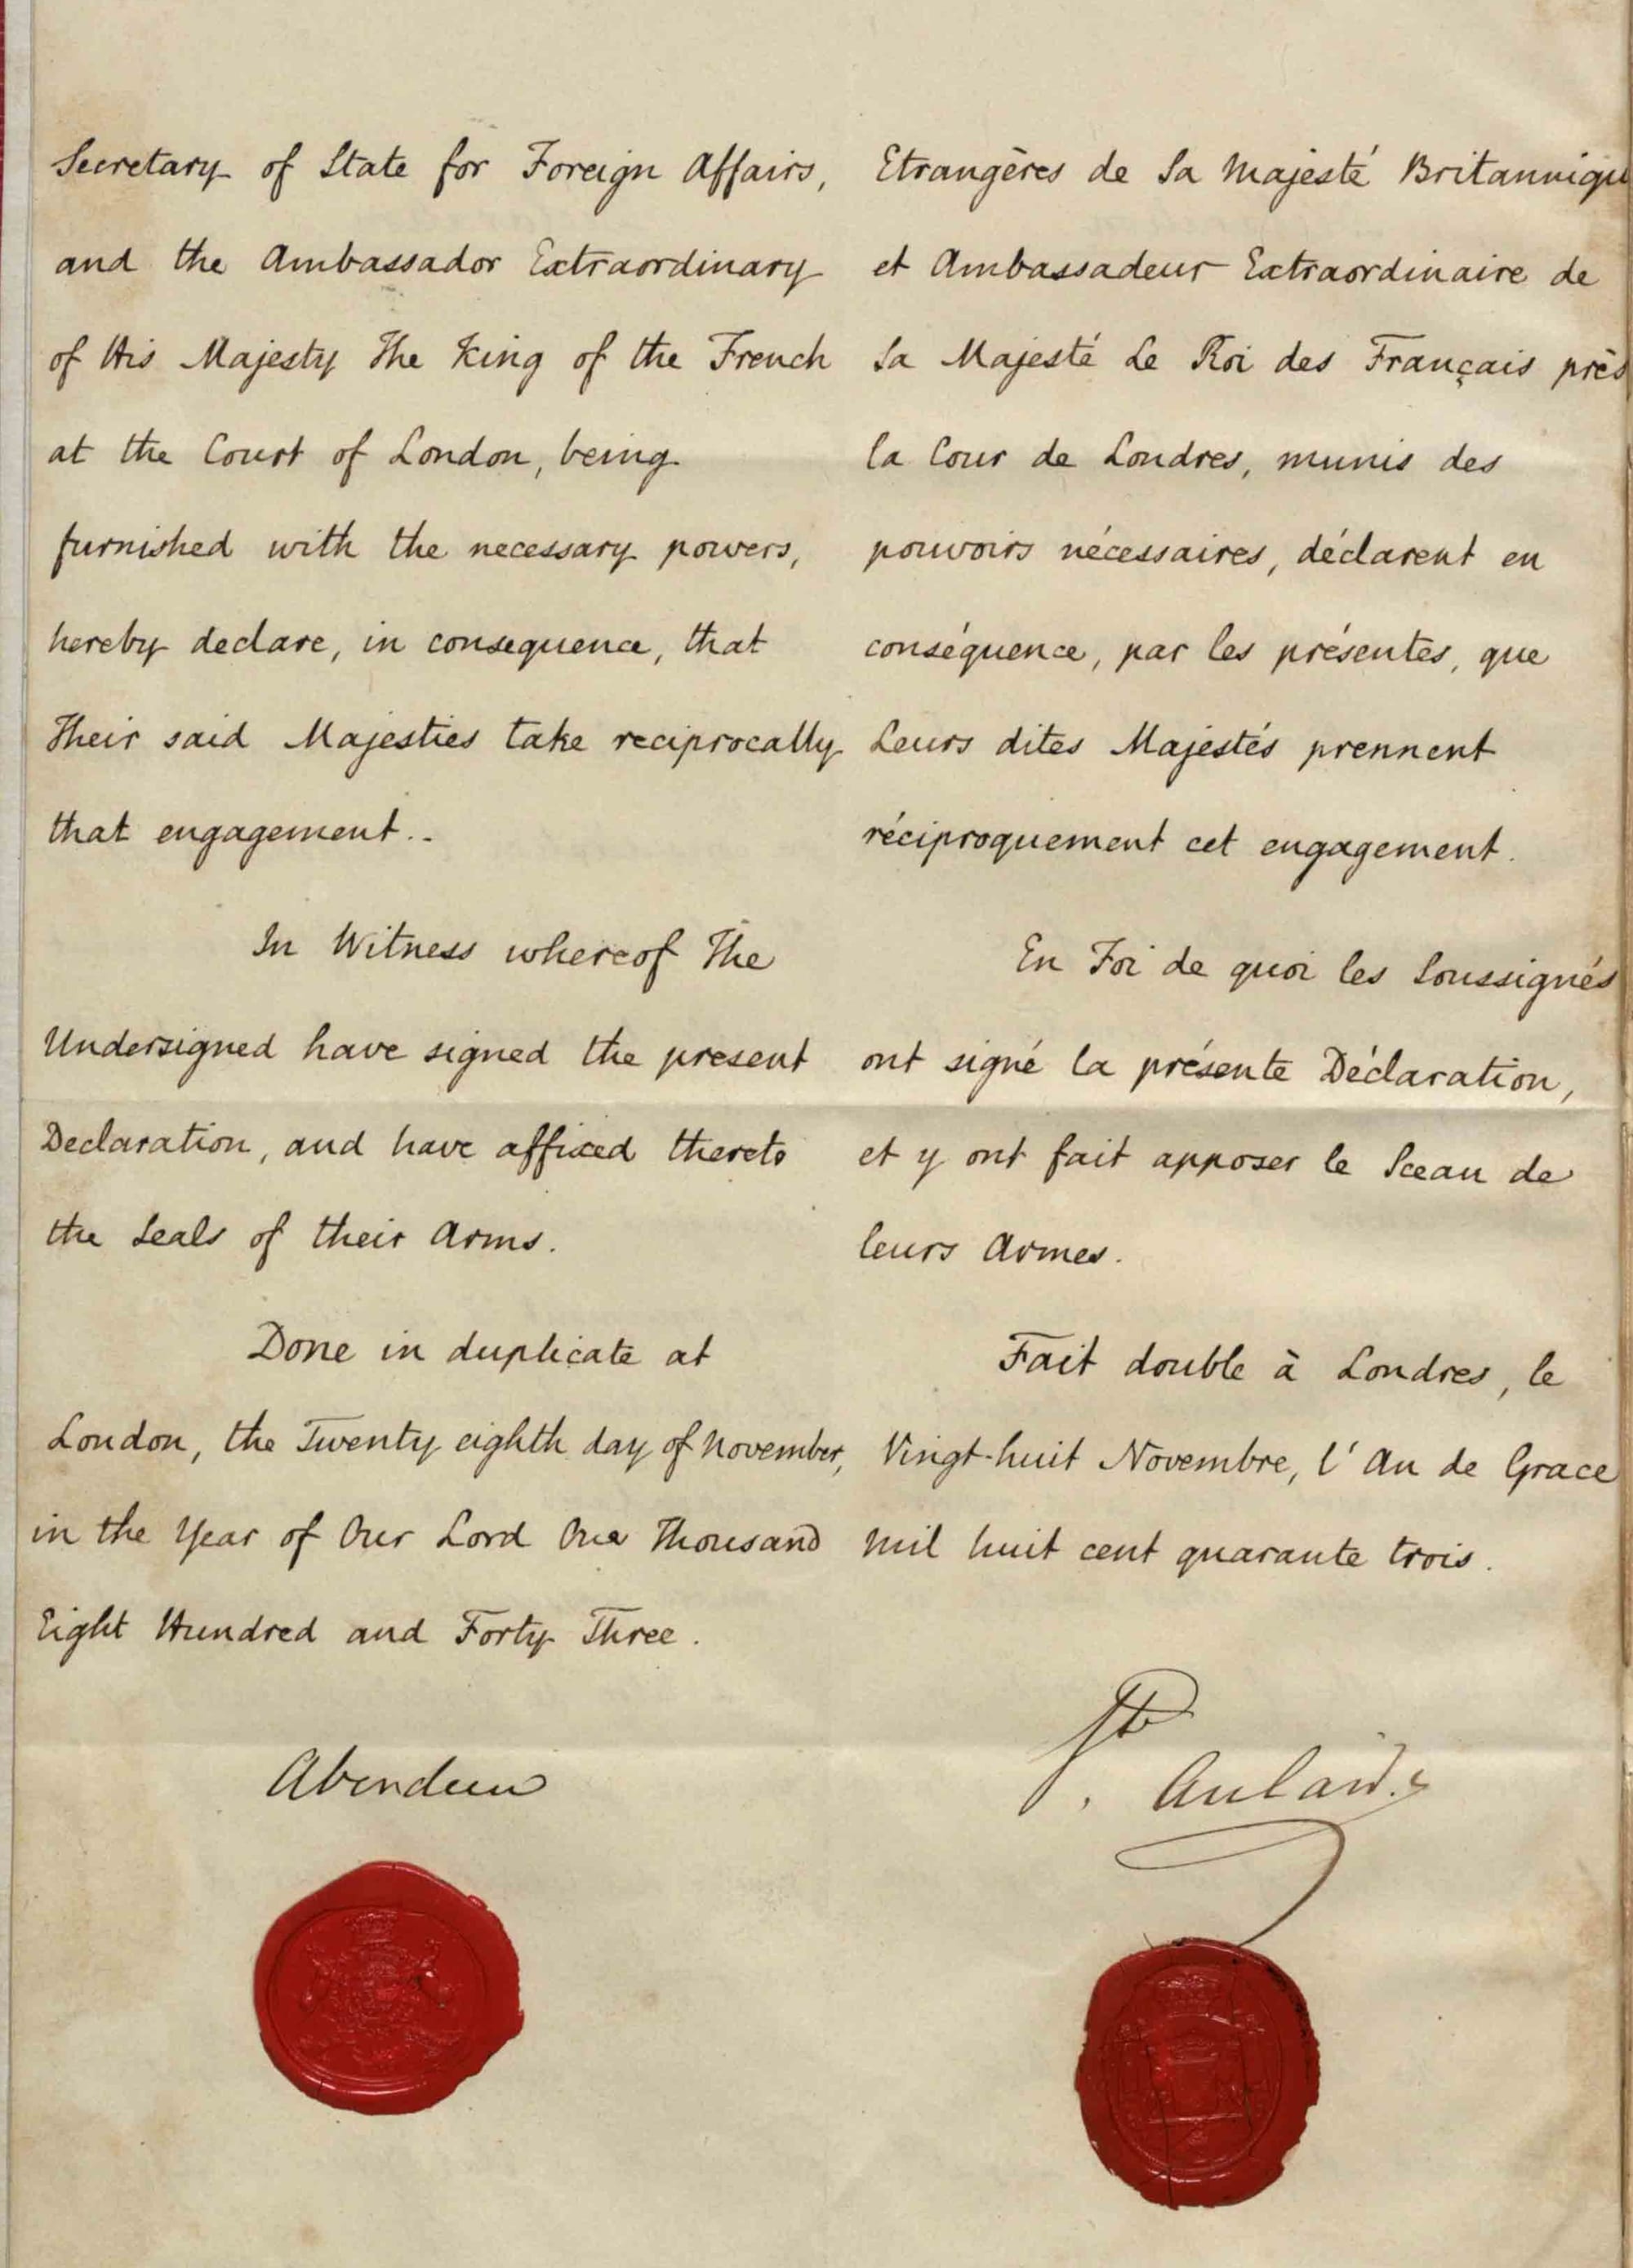 Secretary of State for Foreign Affairs,
and the Ambassador Extraordinary
of His Majesty The King of the French
at the Court of London, being
furnished with the necessary powers,
hereby declare, in consequence, that
Their said Majesties take reciprocally
that engagement..
In Witness whereof The
Undersigned have signed the present
Declaration, and have affixed thereto
the Seals of their Arms.
Done in duplicate at
London, the Twenty eighth day of November,
in the Year of Our Lord One Thousand
Eight Hundred and Forty Three.
Aberdeen
Etrangères de Sa Majesté Britannique
et Ambassadeur Extraordinaire de
Sa Majesté Le Roi des Français près
la Cour de Londres, munis des
pouvoirs nécessaires, déclarent en
conséquence, par les présentes, que
Leurs dites Majestés prennent
réciproquement cet engagement.
En Foi de quoi les Soussignés
ont signé la présente Déclaration,
et y ont fait apposer le Sceau de
leurs Armes.
Fait double à Londres, le
Vingt-huit Novembre, l'An de Grace
mil huit cent quarante trois.
Ste. Aulaire